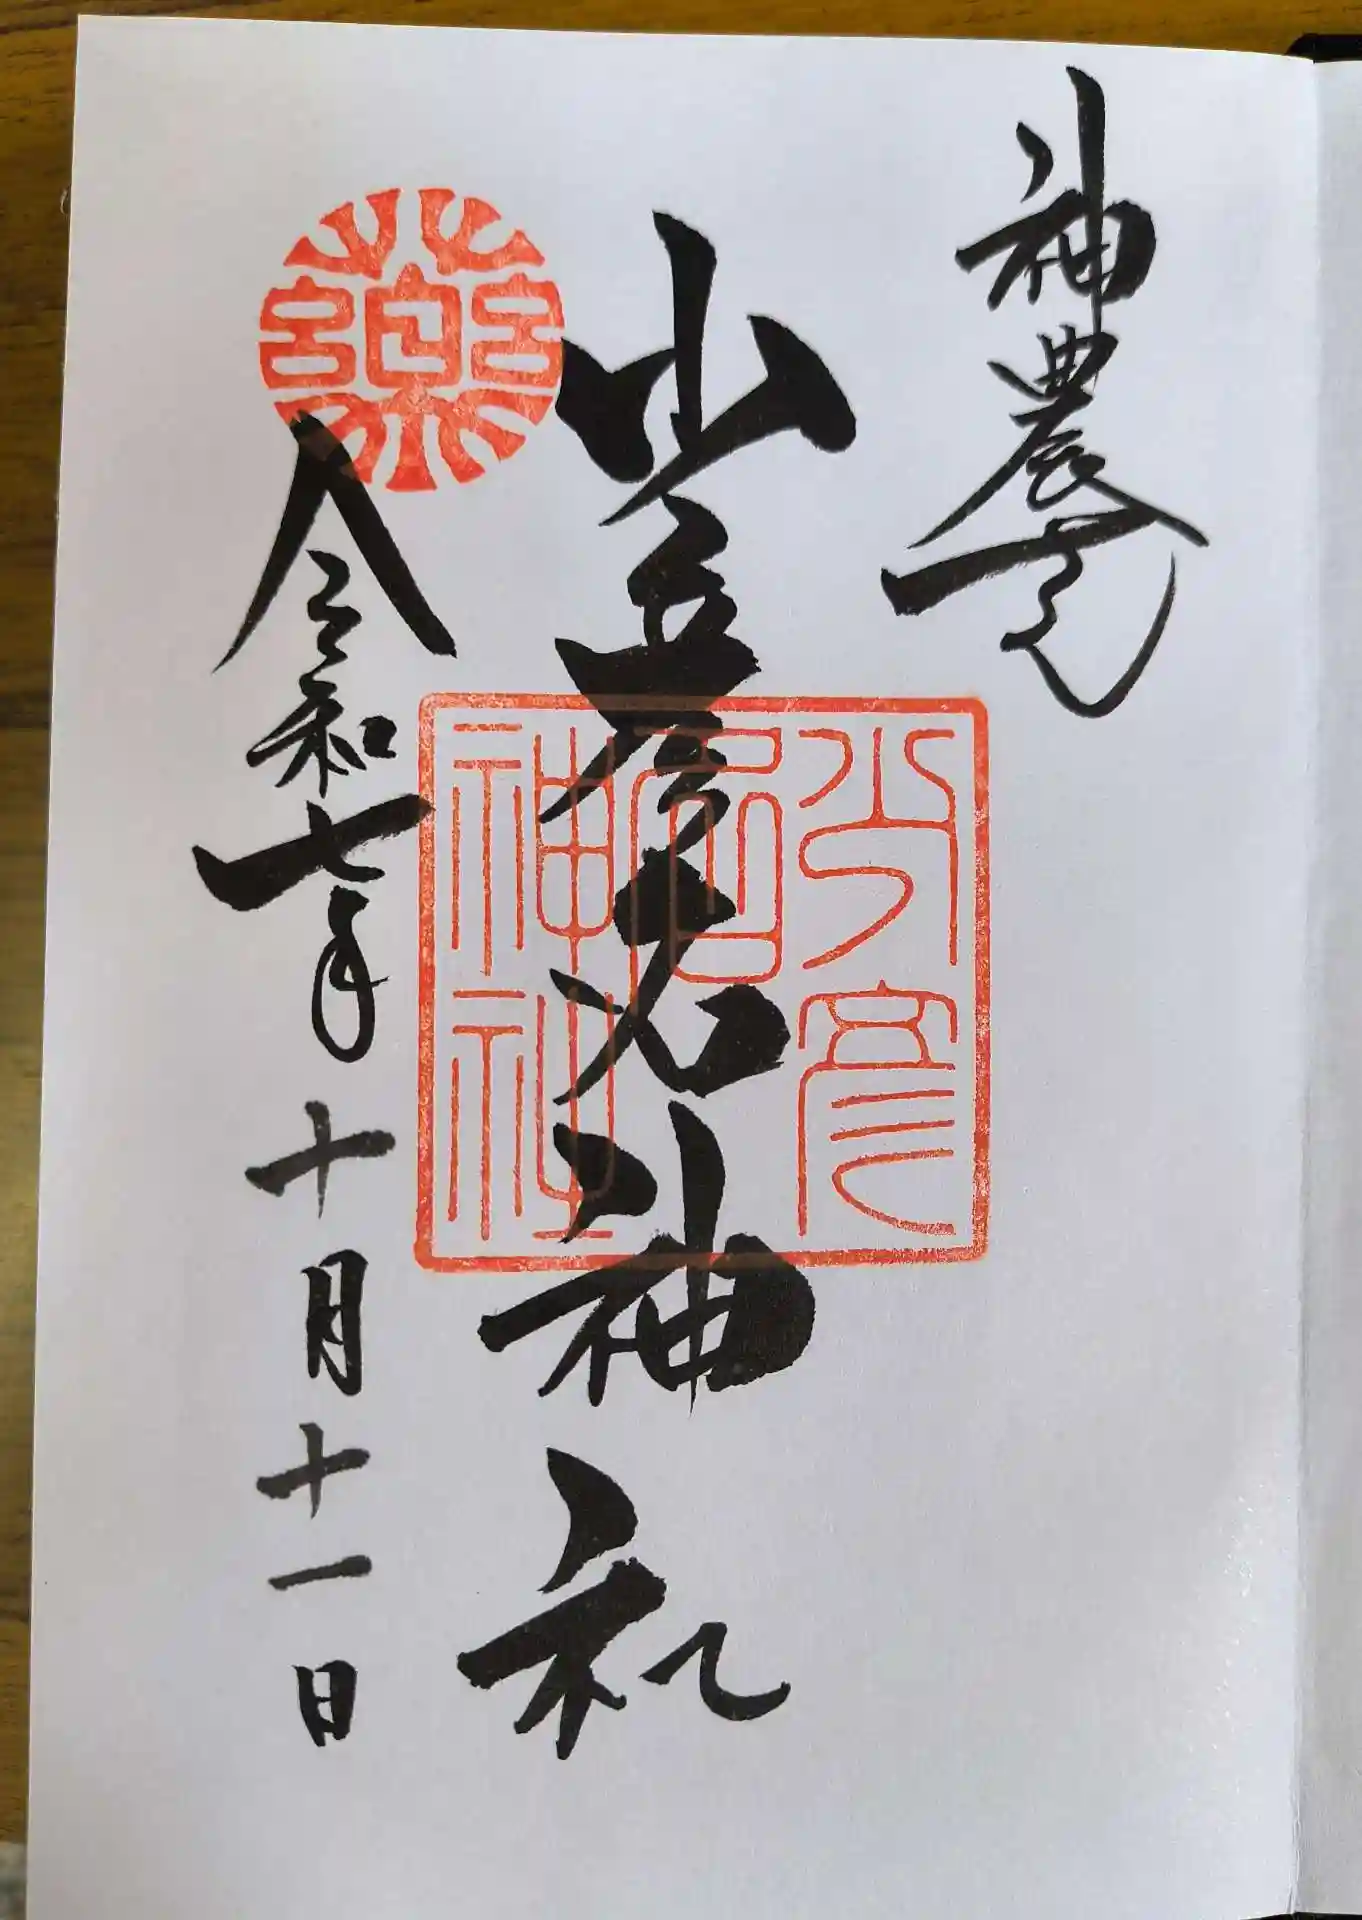 神農さん
少彦名神社
少彦名神社
令和七年十月十一日